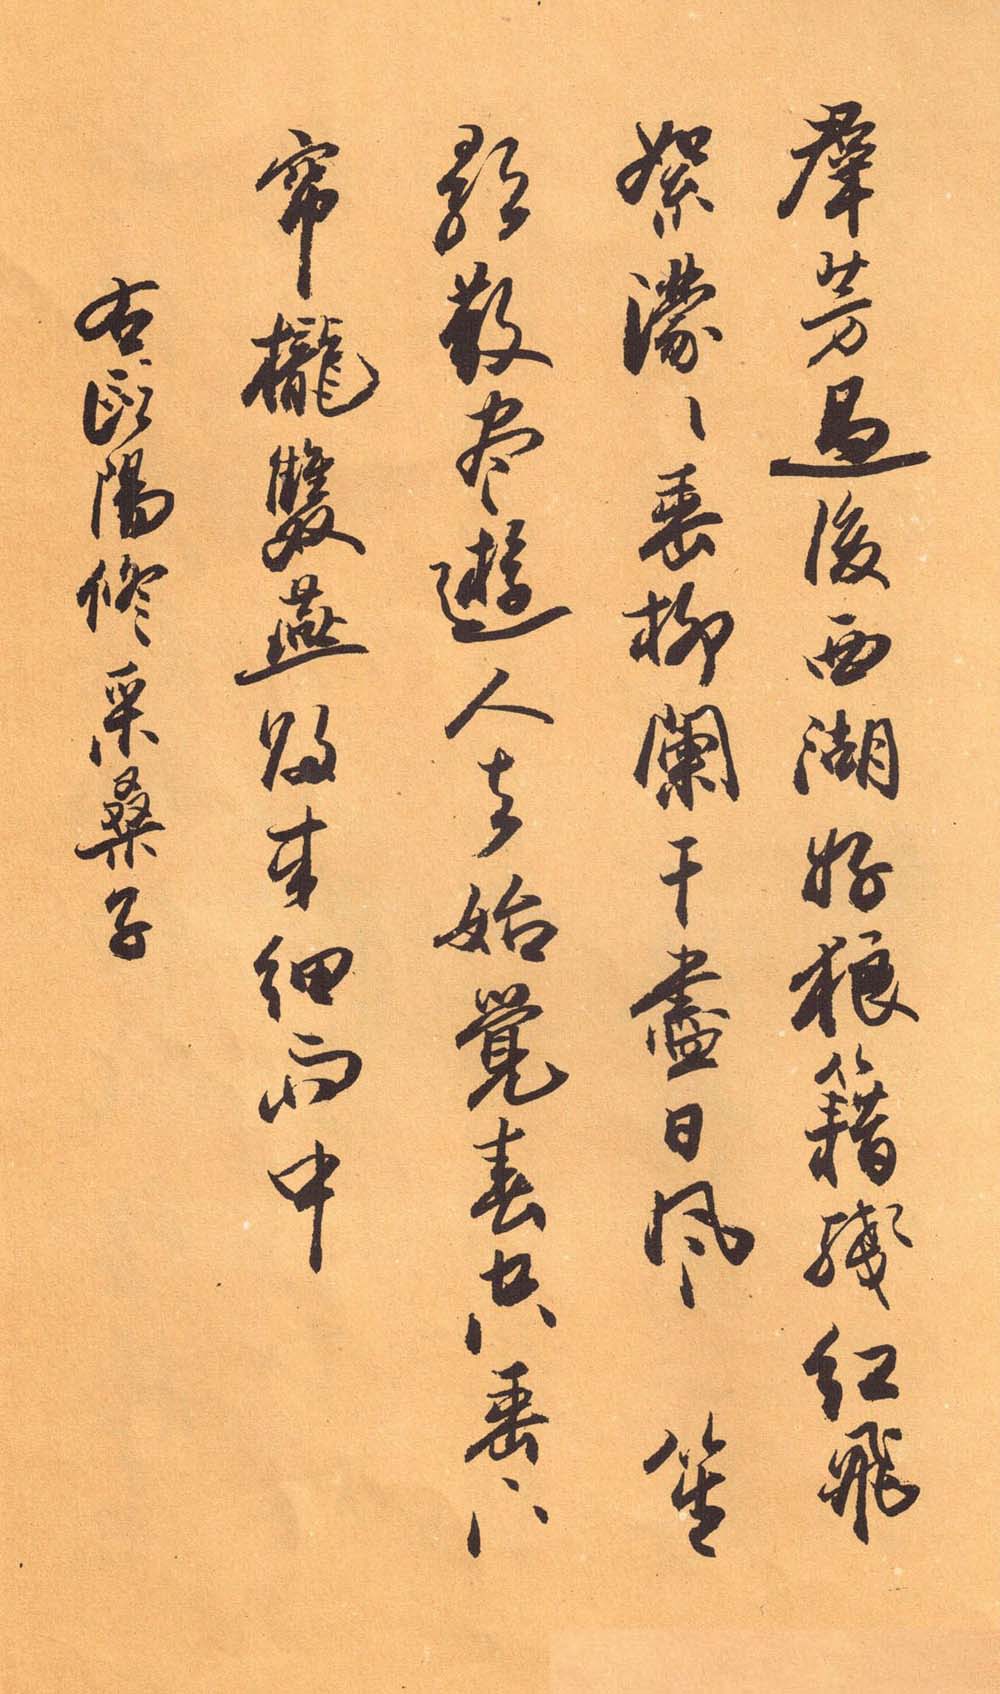 羣芳過後西湖好狼籍殘紅飛
絮濛〻垂柳闌干盡日風　笙
歌散尽遊人去始覺春空垂下
帘櫳雙燕歸来細雨中
右歐陽修采桑子